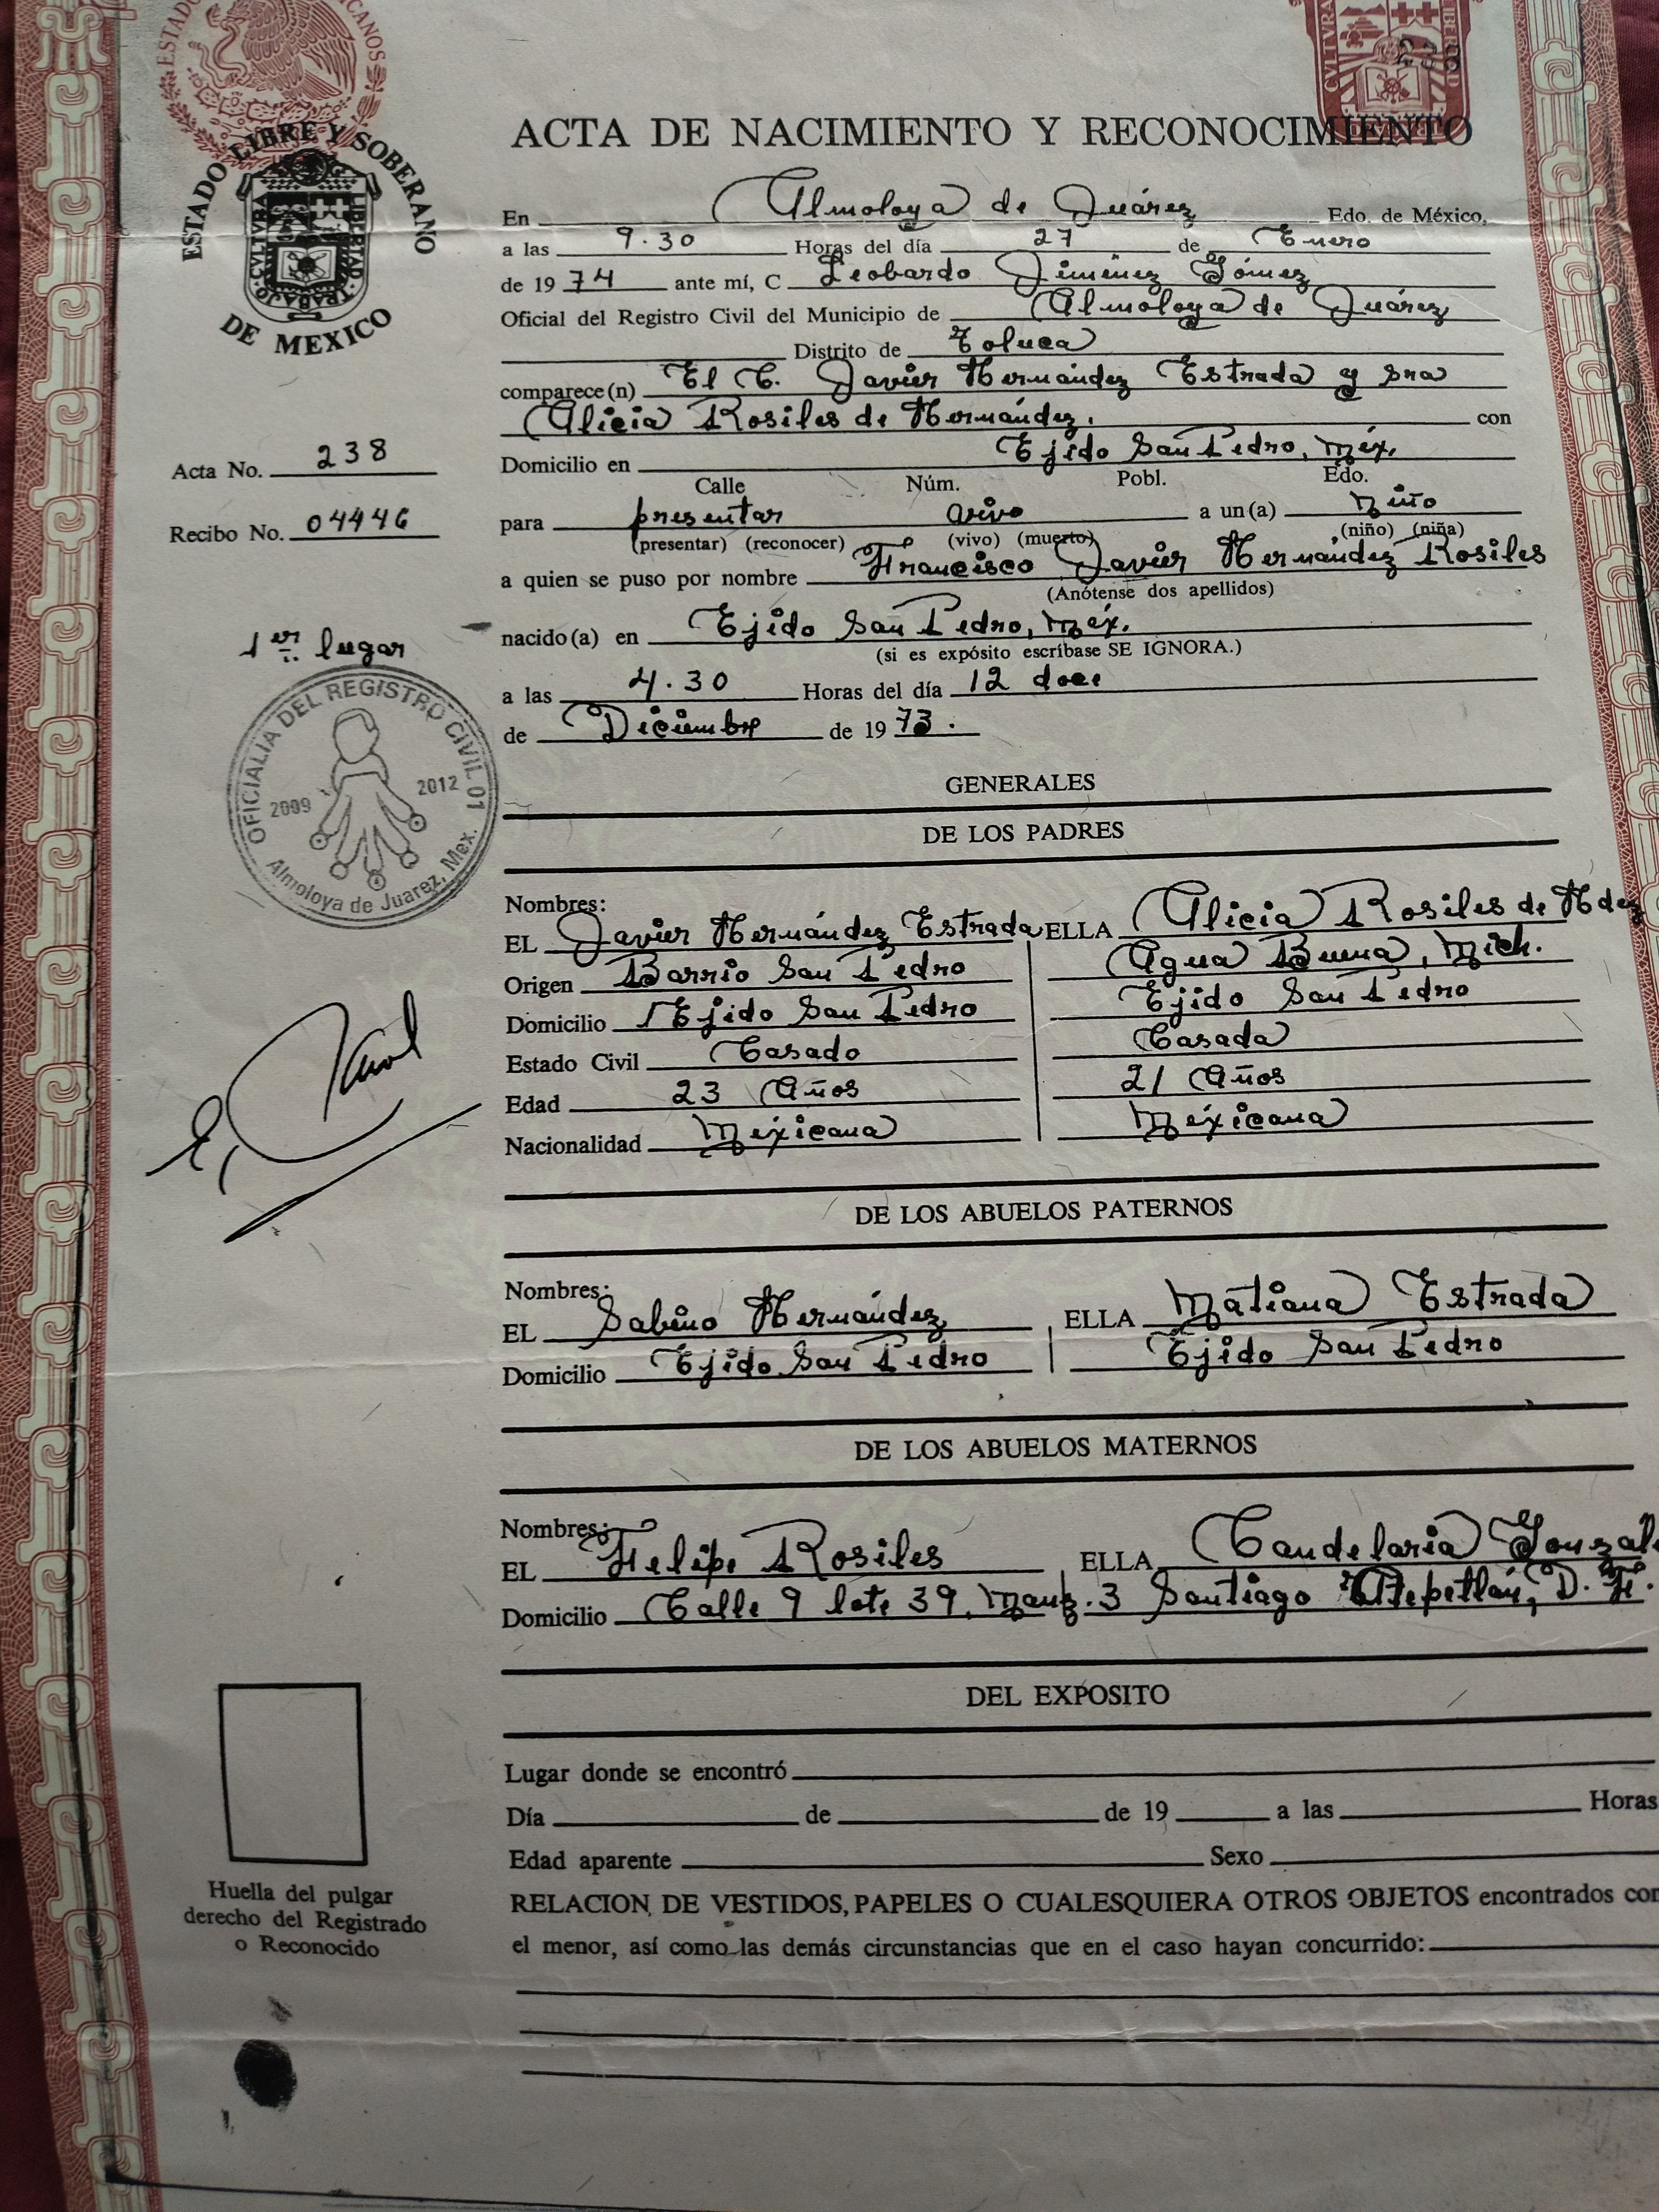 ESTADOS
ICANOS
CVLTVRA
LIBERTAD
238
ESTADO LIBRE Y SOBERANO
CVLTVRA
LIBERTAD
TRABAJO
DE MEXICO
ACTA DE NACIMIENTO Y RECONOCIMIENTO
En Almoloya de Juárez Edo. de México,
a las 9.30 Horas del día 27 de Enero
de 1974 ante mí, C Leobardo Jiménez Gómez
Oficial del Registro Civil del Municipio de Almoloya de Juárez
Distrito de Toluca
comparece(n) El C. Javier Hernández Estrada y sra
Alicia Rosiles de Hernández. con
Acta No. 238
Domicilio en Ejido San Pedro, Méx.
Calle Núm. Pobl. Edo.
Recibo No. 04446
para presentar vivo a un(a) Niño
(presentar) (reconocer) (vivo) (muerto) (niño) (niña)
a quien se puso por nombre Francisco Javier Hernández Rosiles
(Anótense dos apellidos)
1er. lugar
nacido(a) en Ejido San Pedro, Méx.
(si es expósito escríbase SE IGNORA.)
a las 4.30 Horas del día 12 doce
de Diciembre de 1973.
OFICIALIA DEL REGISTRO CIVIL 01
2009 2012
Almoloya de Juarez, Mex.
GENERALES
DE LOS PADRES
Nombres:
EL Javier Hernández Estrada ELLA Alicia Rosiles de Hdez
Origen Barrio San Pedro Agua Buena, Mich.
Domicilio Ejido San Pedro Ejido San Pedro
Estado Civil Casado Casada
Edad 23 Años 21 Años
Nacionalidad Mexicana Mexicana
DE LOS ABUELOS PATERNOS
Nombres:
EL Sabino Hernández ELLA Matiana Estrada
Domicilio Ejido San Pedro Ejido San Pedro
DE LOS ABUELOS MATERNOS
Nombres:
EL Felipe Rosiles ELLA Candelaria Gonzál
Domicilio Calle 9 lote 39, Manz. 3 Santiago Atepetlán, D. F.
DEL EXPOSITO
Lugar donde se encontró
Día de de 19 a las Horas
Edad aparente Sexo
Huella del pulgar
derecho del Registrado
o Reconocido
RELACION DE VESTIDOS, PAPELES O CUALESQUIERA OTROS OBJETOS encontrados con
el menor, así como las demás circunstancias que en el caso hayan concurrido: